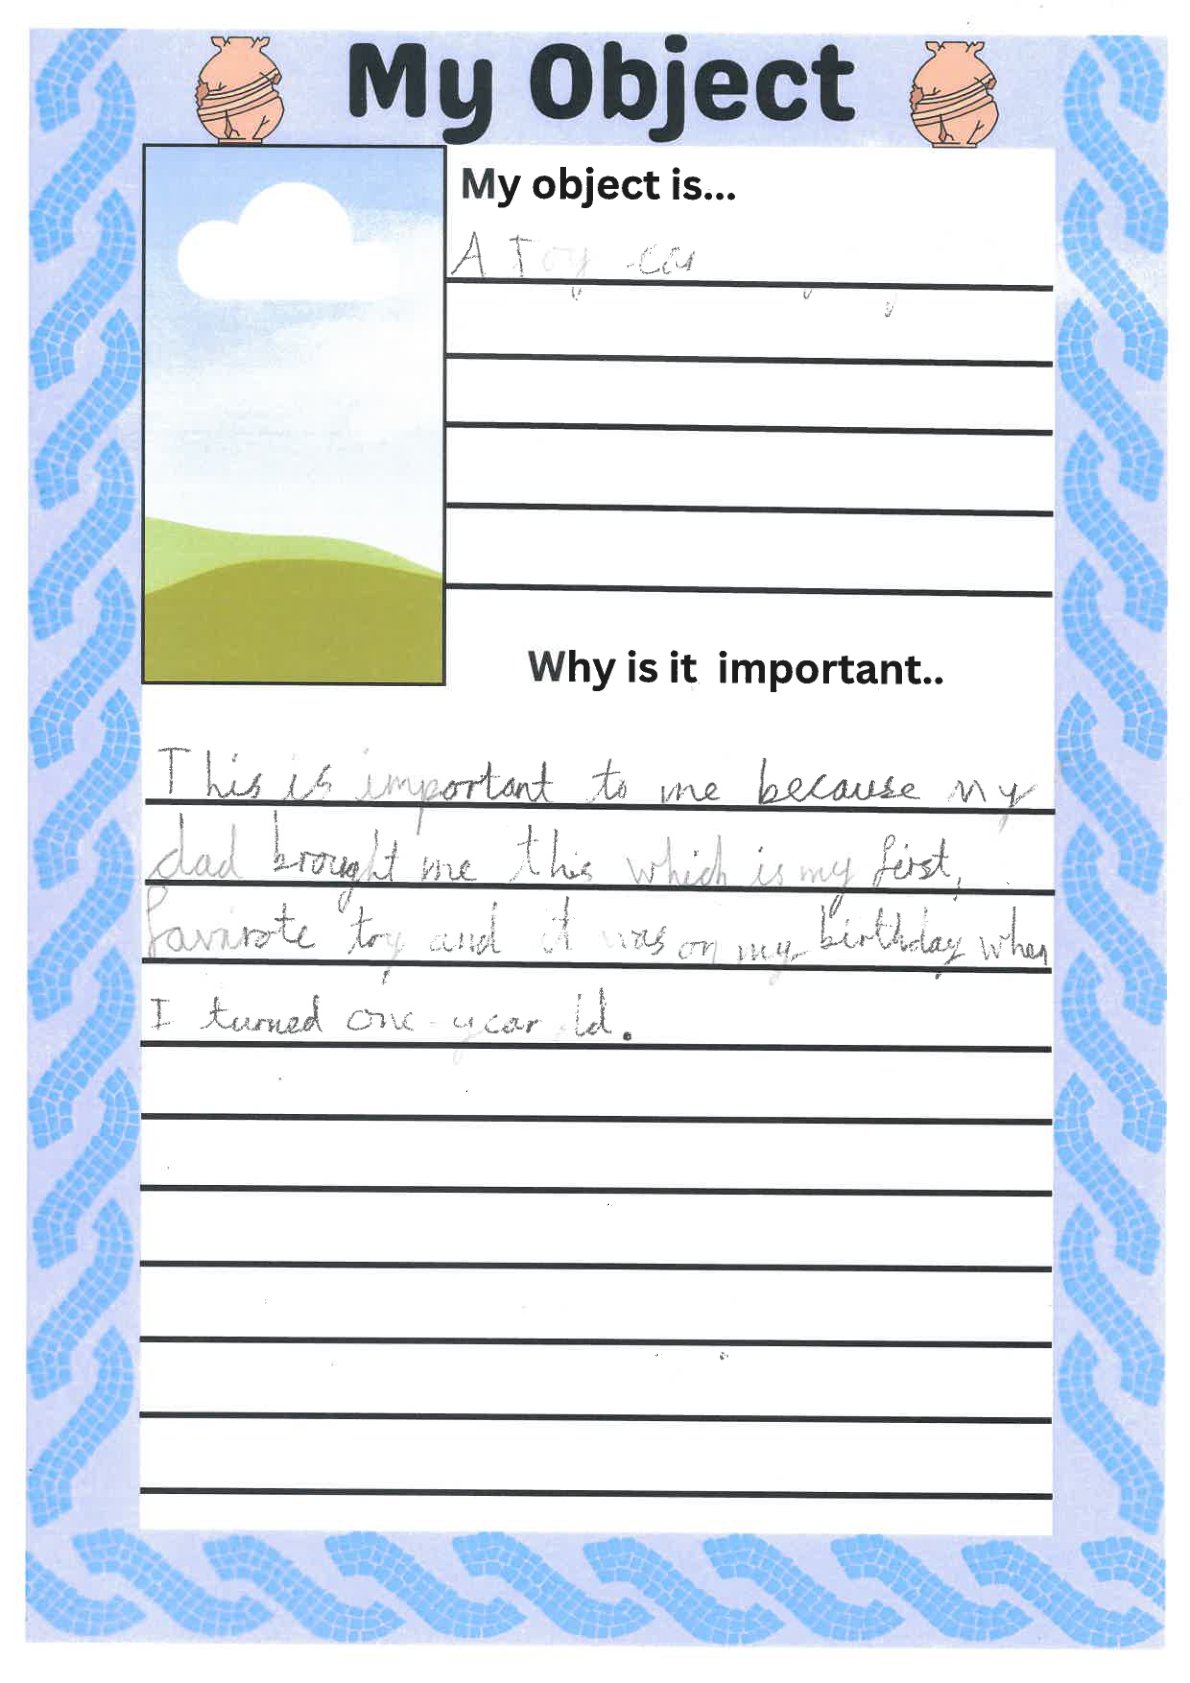 My Object
My object is...
A Toy car
Why is it  important..
This is important to me because my
dad brought me this which is my first,
favirote toy and it was on my birthday when
I turned one-year old.